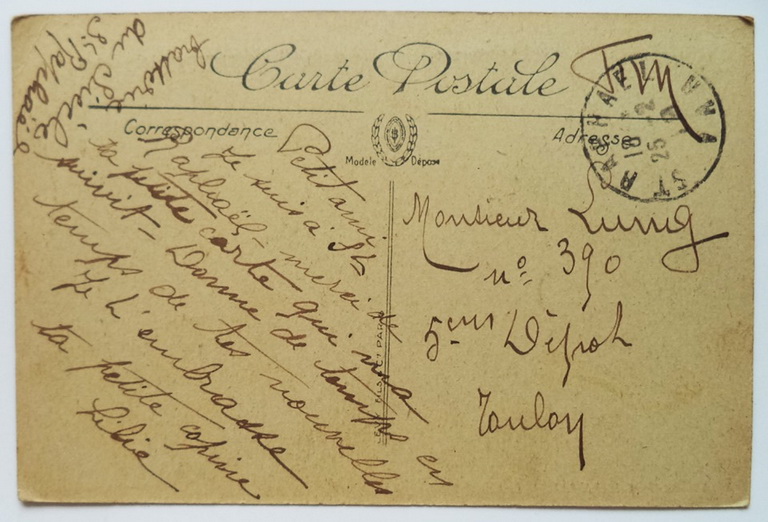 Carte Postale
Correspondance
Adresse
Modèle Déposé
Fm
ST RAPHAEL
18
25
Petit ami
Je suis à St
Raphaël, merci de
ta petite carte qui m'a
suivit - Donne de temps en
temps de tes nouvelles
Je t'embrasse
ta petite copine
Lilie
du Siècle
St Raphaël
Monsieur Lunig
n° 390
5ème Dépot
Toulon